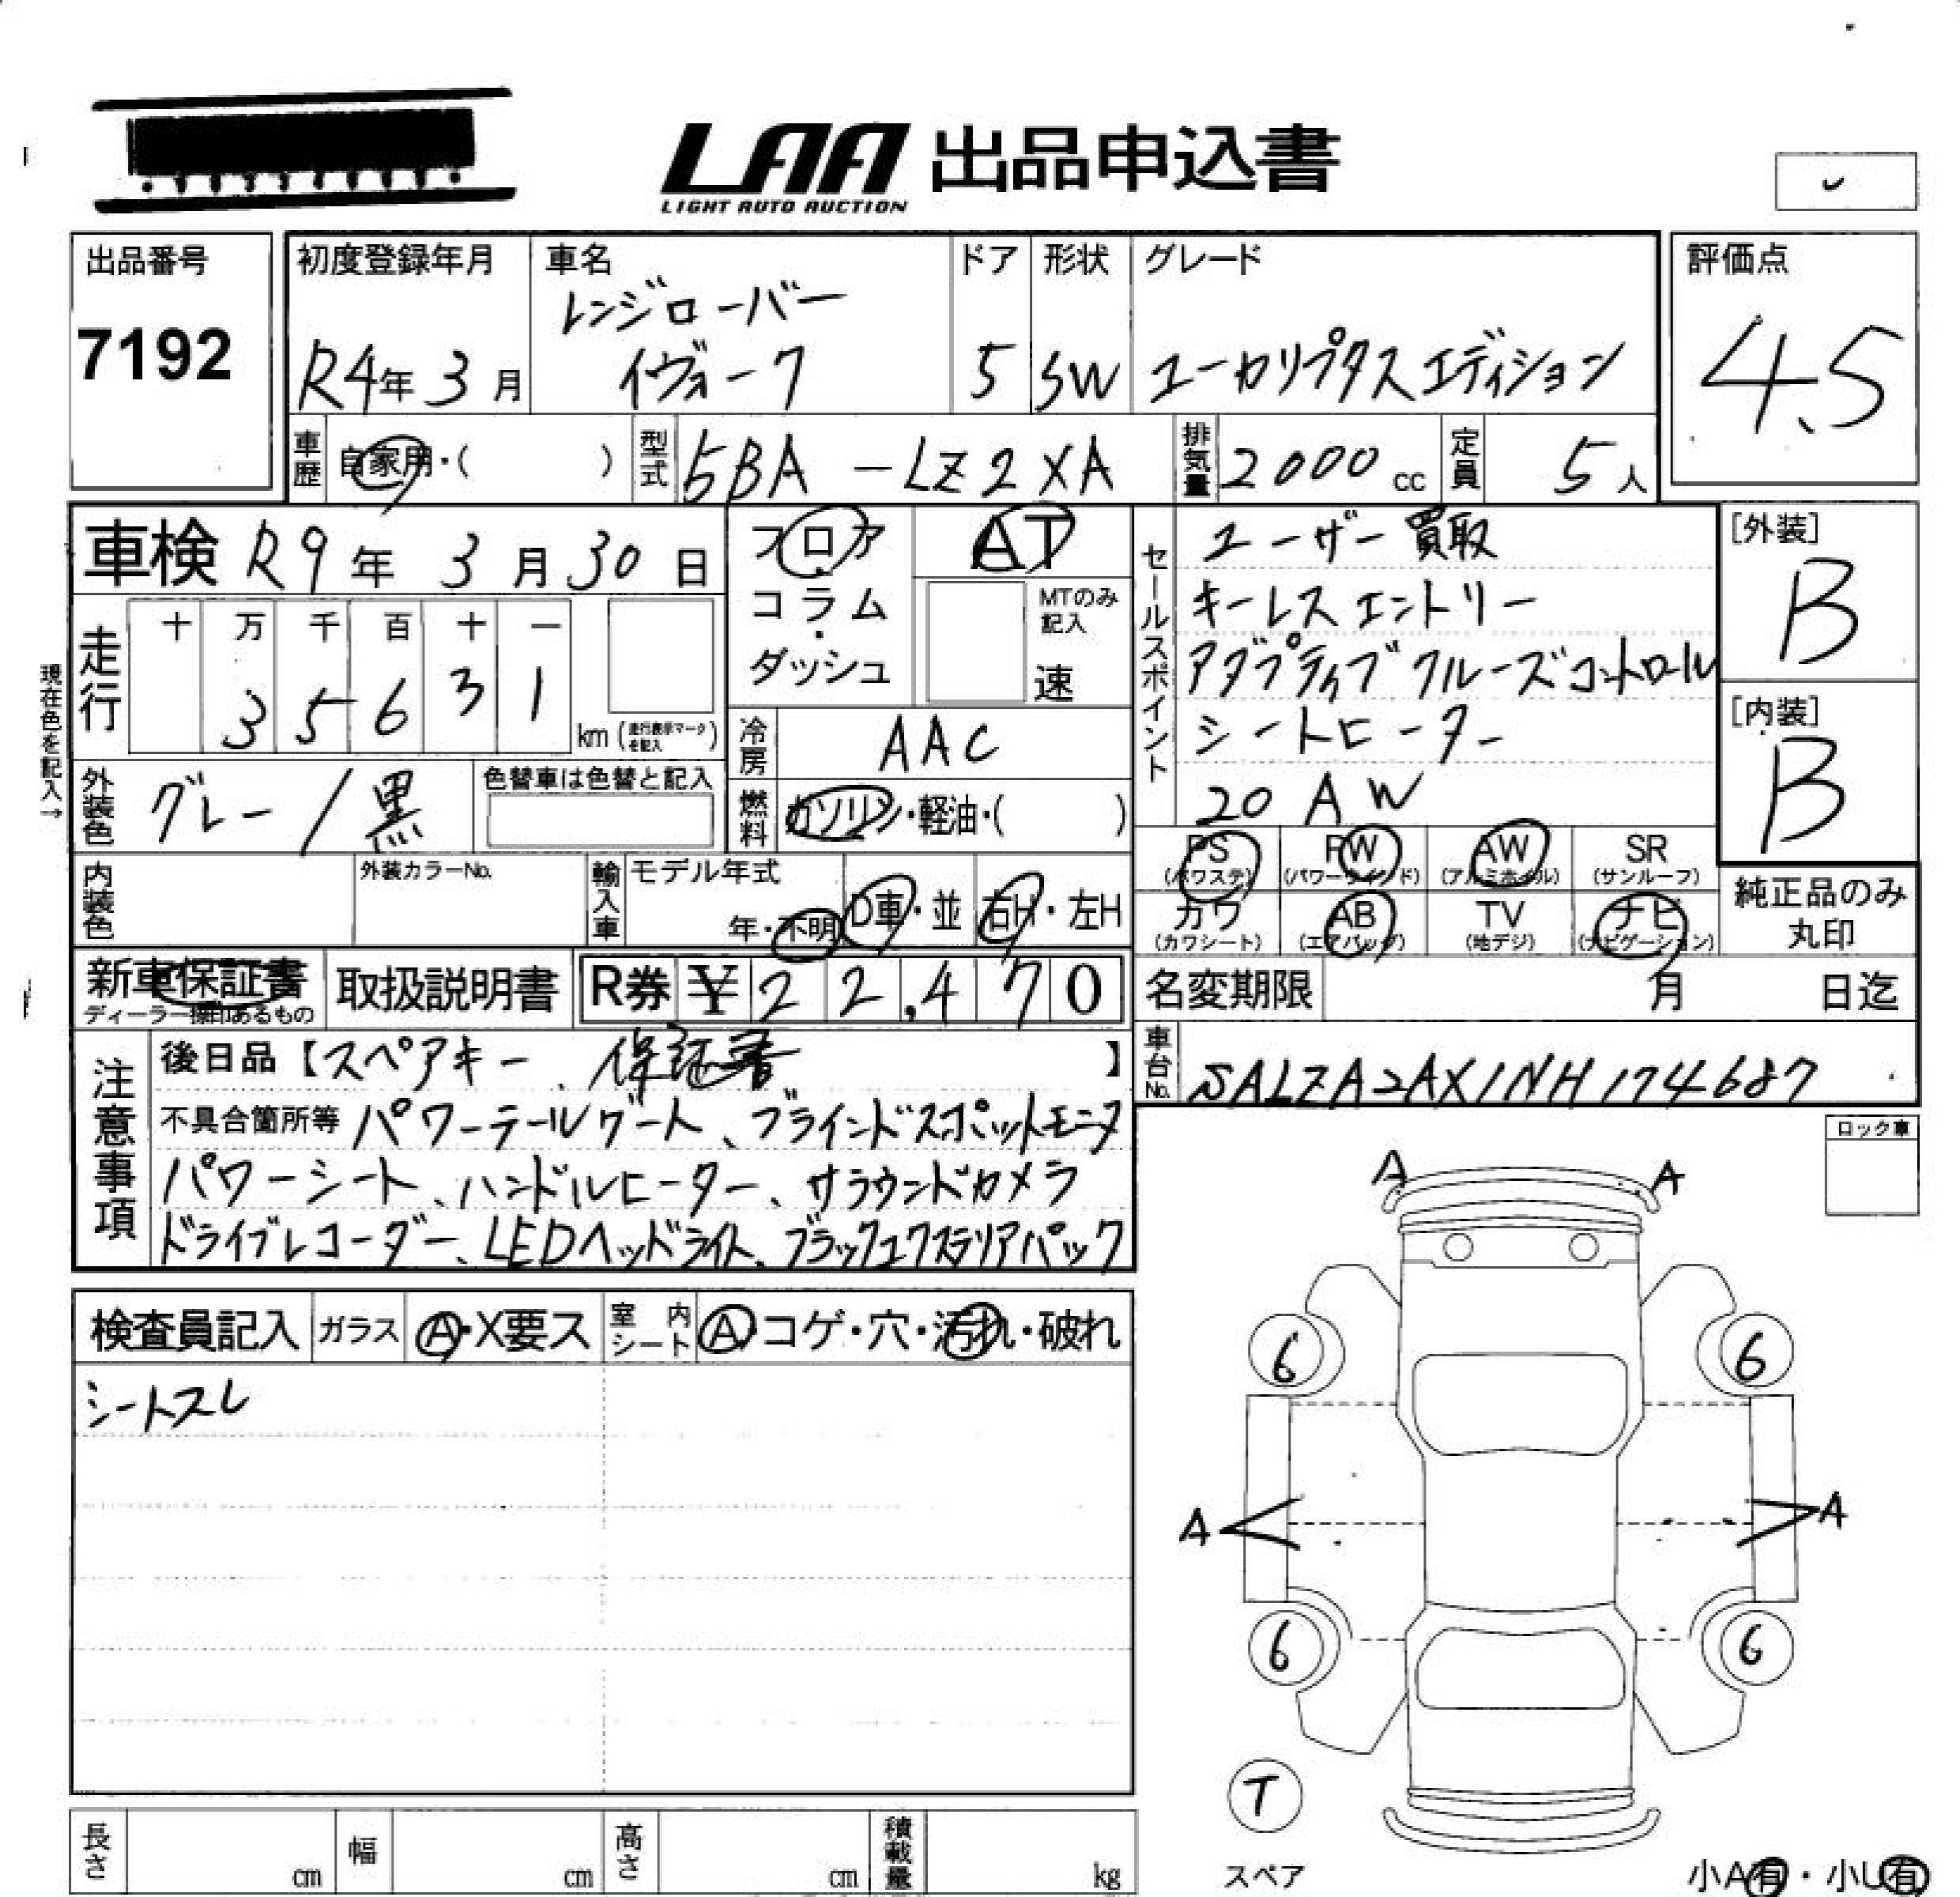 LAA 出品申込書
LIGHT AUTO AUCTION
出品番号
7192
初度登録年月
R4年 3月
車名
レンジローバー
イヴォーク
ドア
5
形状
SW
グレード
ユーカリプタスエディション
評価点
4.5
車歴 自家用・( )
型式 5BA-LZ2XA
排気量 2000cc
定員 5人
車検 R9年 3月30日
フロア・コラム・ダッシュ
AT
MTのみ記入
速
セールスポイント
ユーザー買取
キーレスエントリー
アダプティブクルーズコントロール
シートヒーター
20AW
[外装]
B
[内装]
B
現在色を記入→
走行
十 万 千 百 十 一
3 5 6 3 1 km (走行表示マークを記入)
冷房 AAC
外装色 グレー/黒
色替車は色替と記入
燃料 ガソリン・軽油・( )
PS (パワステ) PW (パワーウインド) AW (アルミホイル) SR (サンルーフ)
カワ (カワシート) AB (エアバッグ) TV (地デジ) ナビ (ナビゲーション)
純正品のみ丸印
内装色
外装カラーNo.
輸入車 モデル年式
年・不明
D車・並
右H・左H
新車保証書
ディーラー捺印あるもの
取扱説明書
R券 ¥22,470
名変期限 月 日迄
車台No. SALZA2AX1NH174687
注意事項
後日品【スペアキー、保証書】
不具合箇所等 パワーテールゲート、ブラインドスポットモニタ
パワーシート、ハンドルヒーター、サラウンドカメラ
ドライブレコーダー、LEDヘッドライト、ブラックエクステリアパック
ロック車
検査員記入 ガラス A・X要ス 室内シート A・コゲ・穴・汚れ・破れ
シートスレ
A A
6 6
A A
6 6
T
スペア
小A有・小U有
長さ cm 幅 cm 高さ cm 積載量 kg